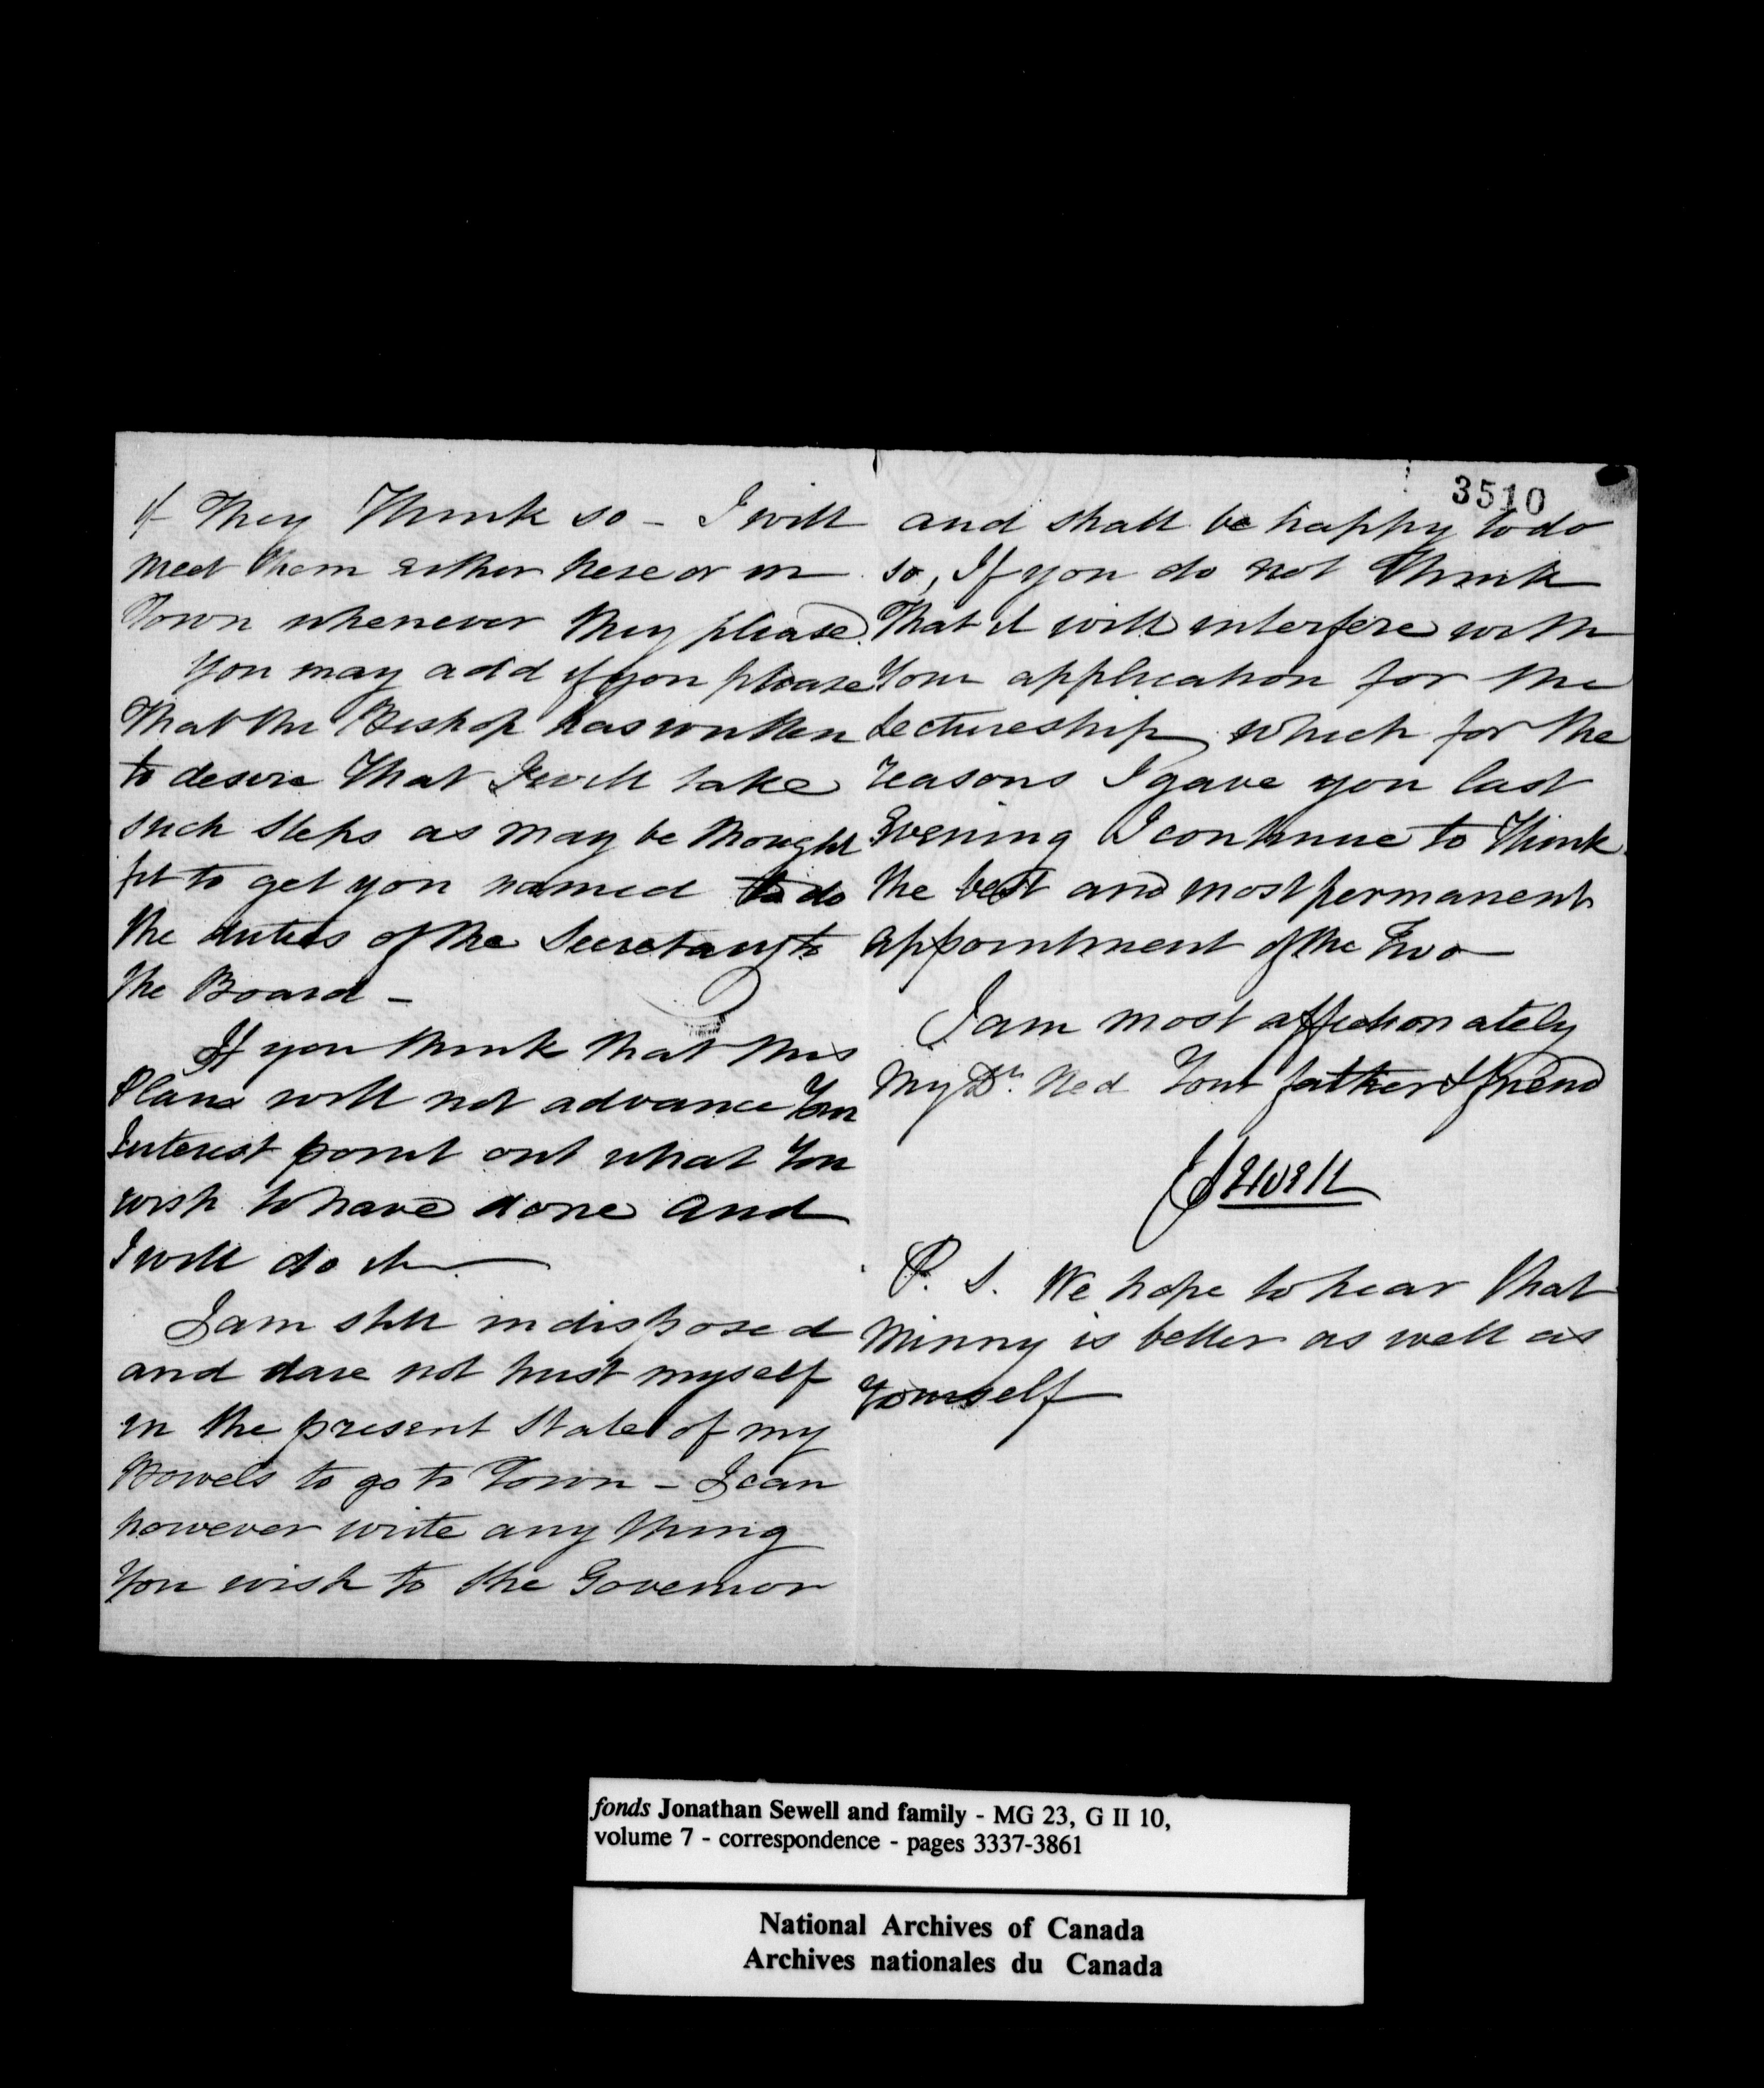 3510
If They Think so - I will
meet them either here or in
Town whenever they please.
You may add if you please
That the Bishop has written
to desire That I will take
such steps as may be thought
fit to get you named to do
the duties of the Secretary to
the Board -
If you think that this
Plan will not advance Your
Interest point out what You
wish to have done and
I will do it
I am still indisposed
and dare not trust myself
in the present State of my
Bowels to go to Town - I can
however write any thing
You wish to the Governor
and shall be happy to do
so, If you do not Think
That it will interfere with
Your application for the
Lectureship which for the
reasons I gave you last
Evening I continue to Think
the best and most permanent
appointment of the Two
I am most affectionately
My Dr. Ned Your father & friend
J Sewell
P. S. We hope to hear that
Minny is better as well as
Yourself
fonds Jonathan Sewell and family - MG 23, G II 10,
volume 7 - correspondence - pages 3337-3861
National Archives of Canada
Archives nationales du Canada